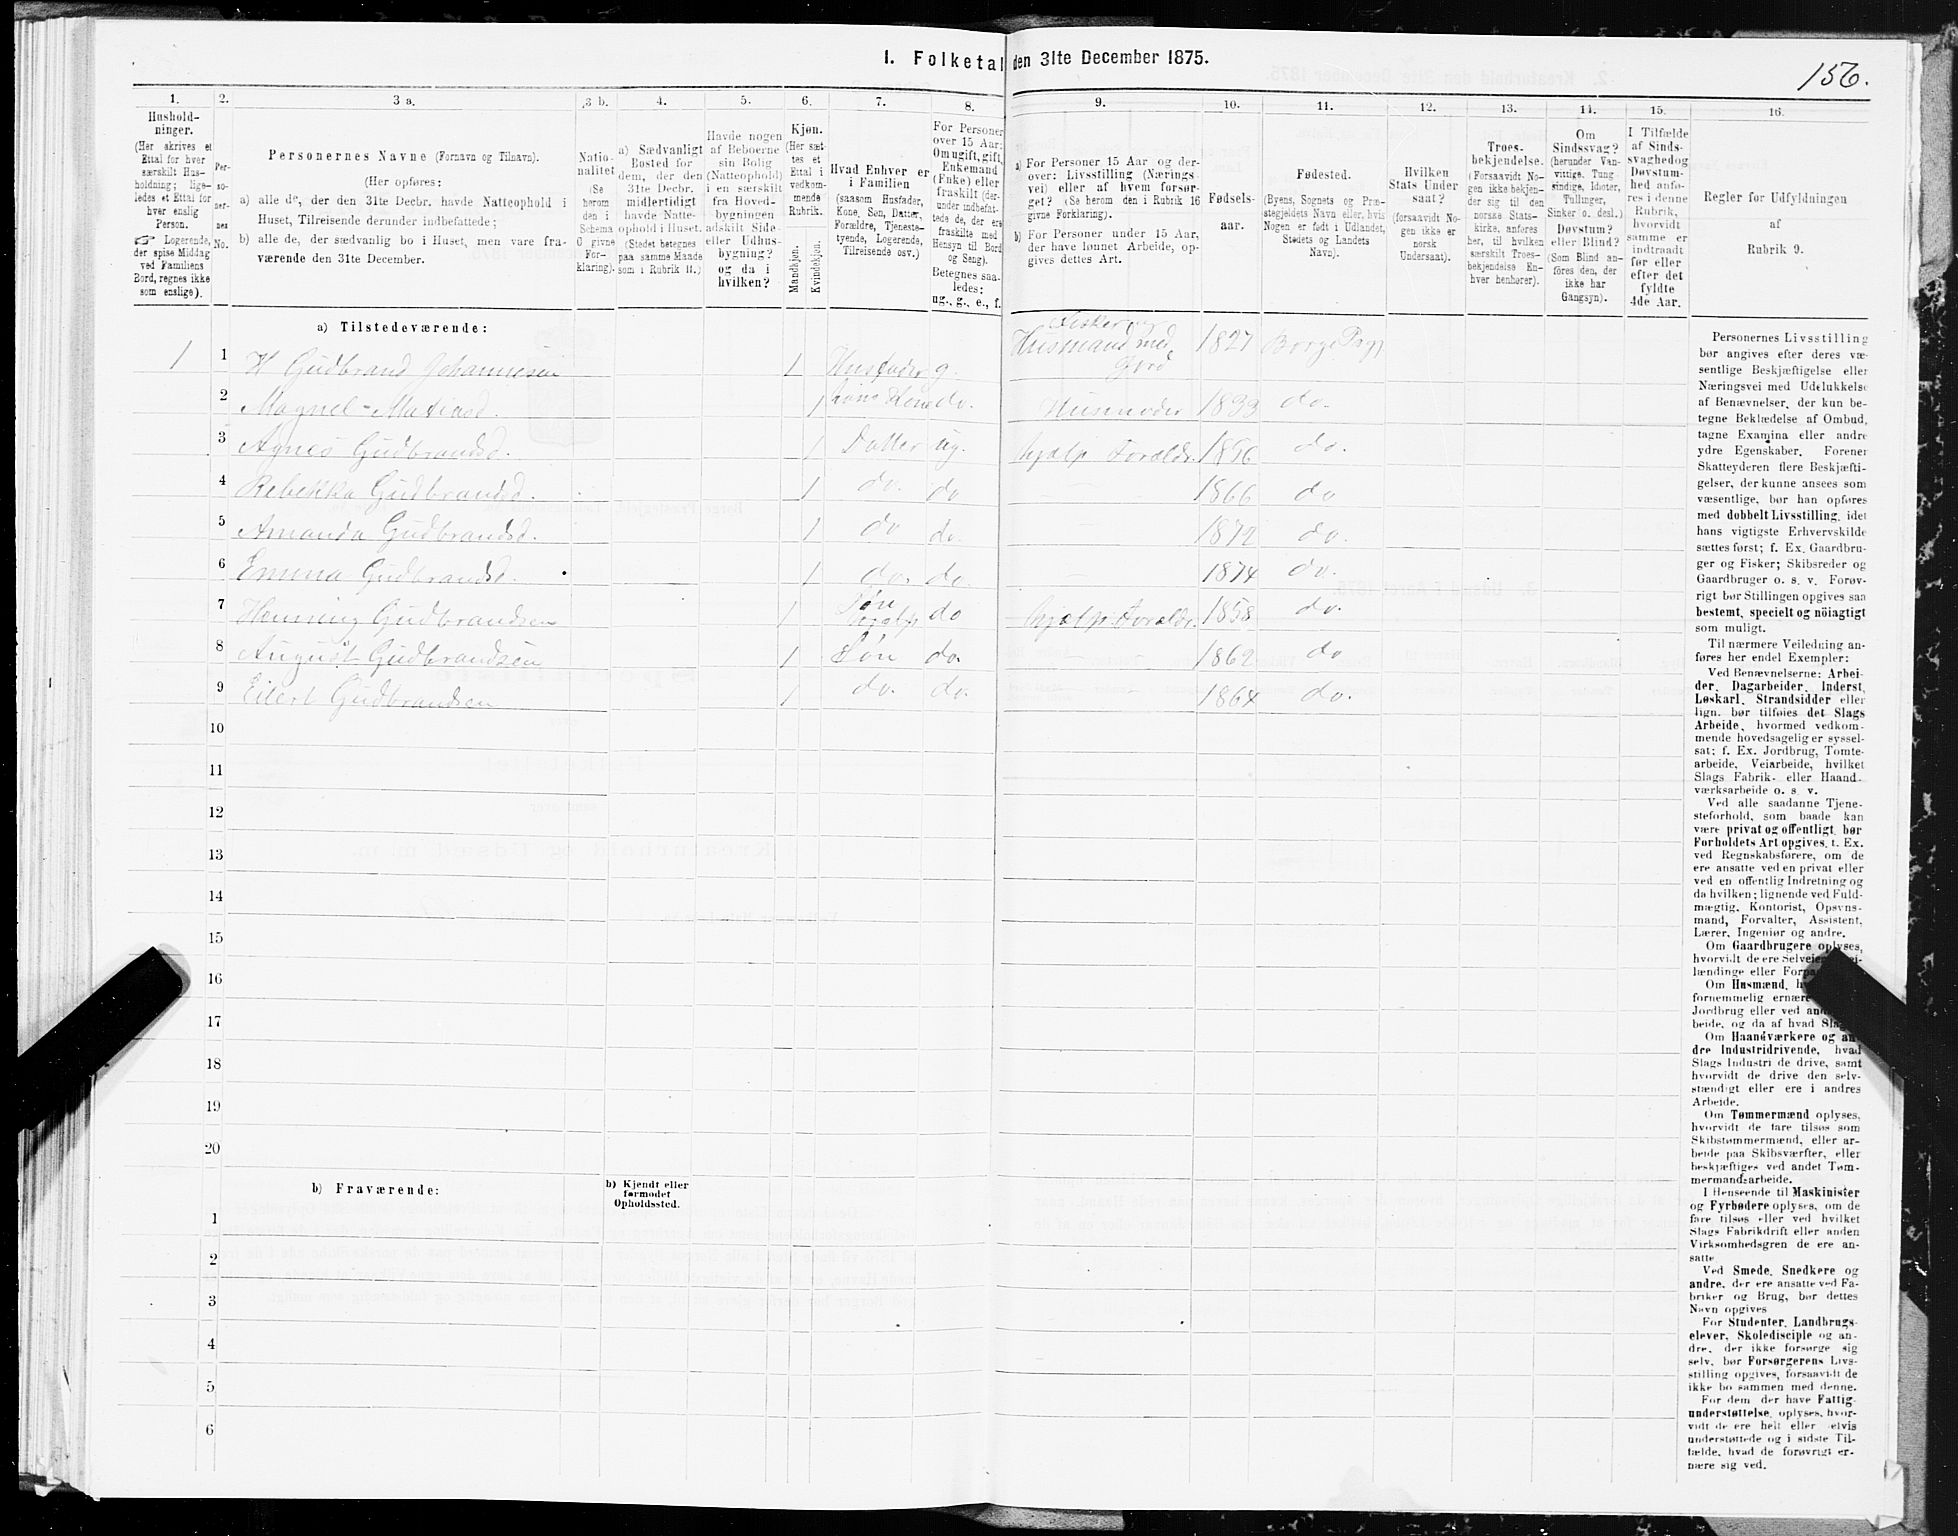 I. Folketal den 31te December 1875.
156.
1.
Hushold-
ninger.
(Her skrives et
Ettal for hver
særskilt Hus-
holdning; lige-
ledes et Ettal for
hver enslig
Person.
☞ Logerende,
der spise Middag
ved Familiens
Bord, regnes ikke
som enslige).
2.
Per-
so-
ner-
nes
No.
3 a.
Personernes Navne (Fornavn og Tilnavn).
(Her opføres:
a) alle de, der den 31te Decbr. havde Natteophold i
Huset, Tilreisende derunder indbefattede;
b) alle de, der sædvanlig bo i Huset, men vare fra-
værende den 31te December.
3 b.
Natio-
nalitet
(Se
herom
den i
Schema
6 givne
For-
klaring).
4.
a) Sædvanligt
Bosted for
dem, der den
31te Decbr.
midlertidigt
havde Natte-
ophold i Huset.
(Stedet betegnes
paa samme Maade
som i Rubrik 11.)
5.
Havde nogen
af Beboerne
sin Bolig
(Natteophold)
i en særskilt
fra Hoved-
bygningen
adskilt Side-
eller Udhus-
bygning?
og da i
hvilken?
6.
Kjøn.
(Her sæt-
tes et
Ettal i
vedkom-
mende
Rubrik.
Mandkjøn.
Kvindekjøn.
7.
Hvad Enhver er
i Familien
(saasom Husfader,
Kone, Søn, Datter,
Forældre, Tjeneste-
tyende, Logerende,
Tilreisende osv.)
8.
For Personer
over 15 Aar:
Om ugift, gift,
Enkemand
(Enke) eller
fraskilt (der-
under indbefat-
tede de, der ere
fraskilte med
Hensyn til Bord
og Seng).
Betegnes saa-
ledes:
ug., g., e., f.
9.
a) For Personer 15 Aar og der-
over: Livsstilling (Nærings-
vei) eller af hvem forsør-
get? (Se herom den i Rubrik 16
givne Forklaring).
b) For Personer under 15 Aar,
der have lønnet Arbeide, op-
gives dettes Art.
10.
Fødsels-
aar.
11.
Fødested.
(Byens, Sognets og Præ-
stegjeldets Navn eller, hvis
Nogen er født i Udlandet,
Stedets og Landets
Navn).
12.
Hvilken
Stats Under-
saat?
(forsaavidt No-
gen ikke er
norsk
Undersaat).
13.
Troes-
bekjendelse.
(Forsaavidt No-
gen ikke bekjen-
der sig til den
norske Stats-
kirke, anføres
her, til hvilken
særskilt Troes-
bekjendelse En-
hver henhører).
14.
Om
Sindssvag?
(herunder Van-
vittige, Tung-
sindige, Idioter,
Tullinger,
Sinker o. desl.)
Døvstum?
eller Blind?
(Som Blind an-
føres den, der
ikke har
Gangsyn).
15.
I Tilfælde
af Sinds-
svaghed og
Døvstum-
hed anfø-
res i denne
Rubrik,
hvorvidt
samme er
indtraadt
før eller
efter det
fyldte
4de Aar.
16.
Regler for Udfyldningen
af
Rubrik 9.
a) Tilstedeværende:
1 1 H Gudbrand Johannesen 1 Husfader g. Fisker og Husmand med Jord 1827 Borge Prgj
2 Magnel-Matiasd. 1 Kone do. Husmoder 1833 do.
3 Agnes Gudbrandsd. 1 Datter ug. hjælp Forældr. 1856 do.
4 Rebekka Gudbrandsd. 1 do. do 1866 do
5 Amanda Gudbrandsd. 1 do do. 1872 do.
6 Emma Gudbrandsd. 1 do. do. 1874 do.
7 Henning Gudbrandsen 1 Søn hjælp do hjælp Forældr. 1858 do.
8 August Gudbrandsen 1 Søn do. 1862 do
9 Eilert Gudbrandsen 1 do. do. 1864 do.
10
11
12
13
14
15
16
17
18
19
20
b) Fraværende:
b) Kjendt eller
formodet
Opholdssted.
1
2
3
4
5
6
Personernes Livsstilling
bør angives efter deres væ-
sentlige Beskjæftigelse eller
Næringsvei med Udelukkelse
af Benævnelser, der kun be-
tegne Beklædelse af Ombud,
tagne Examina eller andre
ydre Egenskaber. Forener
Skatteyderen flere Beskjæfti-
gelser, der kunne ansees som
væsentlige, bør han opføres
med dobbelt Livsstilling, idet
hans vigtigste Erhvervskilde
sættes først; f. Ex. Gaardbru-
ger og Fisker; Skibsreder og
Gaardbruger o. s. v. Forøv-
rigt bør Stillingen opgives saa
bestemt, specielt og nöiagtigt
som muligt.
Til nærmere Veiledning an-
føres her endel Exempler:
Ved Benævnelserne: Arbei-
der, Dagarbeider, Inderst,
Løskarl, Strandsidder eller
lign. bør tilføies det Slags
Arbeide, hvormed vedkom-
mende hovedsagelig er syssel-
sat; f. Ex. Jordbrug, Tomte-
arbeide, Veiarbeide, hvilket
Slags Fabrik- eller Haand-
værksarbeide o. s. v.
Ved alle saadanne Tjene-
steforhold, som baade kan
være privat og offentligt, bør
Forholdets Art opgives, f. Ex.
ved Regnskabsførere, om de
ere ansatte ved en privat eller
ved en offentlig Indretning og
da hvilken; lignende ved Fuld-
mægtig, Kontorist, Opsyns-
mand, Forvalter, Assistent,
Lærer, Ingeniør og andre.
Om Gaardbrugere oplyses,
hvorvidt de ere Selveiere, Lei-
lændinge eller Forpa
Om Husmænd, h
fornemmelig ernære
Jordbrug eller ved an
beide, og da af hvad Slags
Om Haandværkere og an-
dre Industridrivende, hvad
Slags Industri de drive, samt
hvorvidt de drive den selv-
stændigt eller ere i andres
Arbeide.
Om Tømmermænd oplyses,
hvorvidt de fare tilsøs som
Skibstømmermænd, eller ar-
beide paa Skibsværfter, eller
beskjæftiges ved andet Tøm-
mermandsarbeide.
I Henseende til Maskinister
og Fyrbødere oplyses, om de
fare tilsøs eller ved hvilket
Slags Fabrikdrift eller anden
Virksomhedsgren de ere an-
satte
Ved Smede, Snedkere og
andre, der ere ansatte ved Fa-
briker og Brug, bør dettes
Navn opgives
For Studenter, Landbrugs-
elever, Skoledisciple og an-
dre, der ikke forsørge sig
selv, bør Forsørgerens Livs-
stilling opgives, forsaavidt de
ikke bo sammen med denne.
For dem der have Fattig-
understøttelse, oplyses, hvor-
vidt de ere helt eller delvis
understøttede og i sidste Til-
fælde, hvad de forøvrigt er-
nære sig ved.